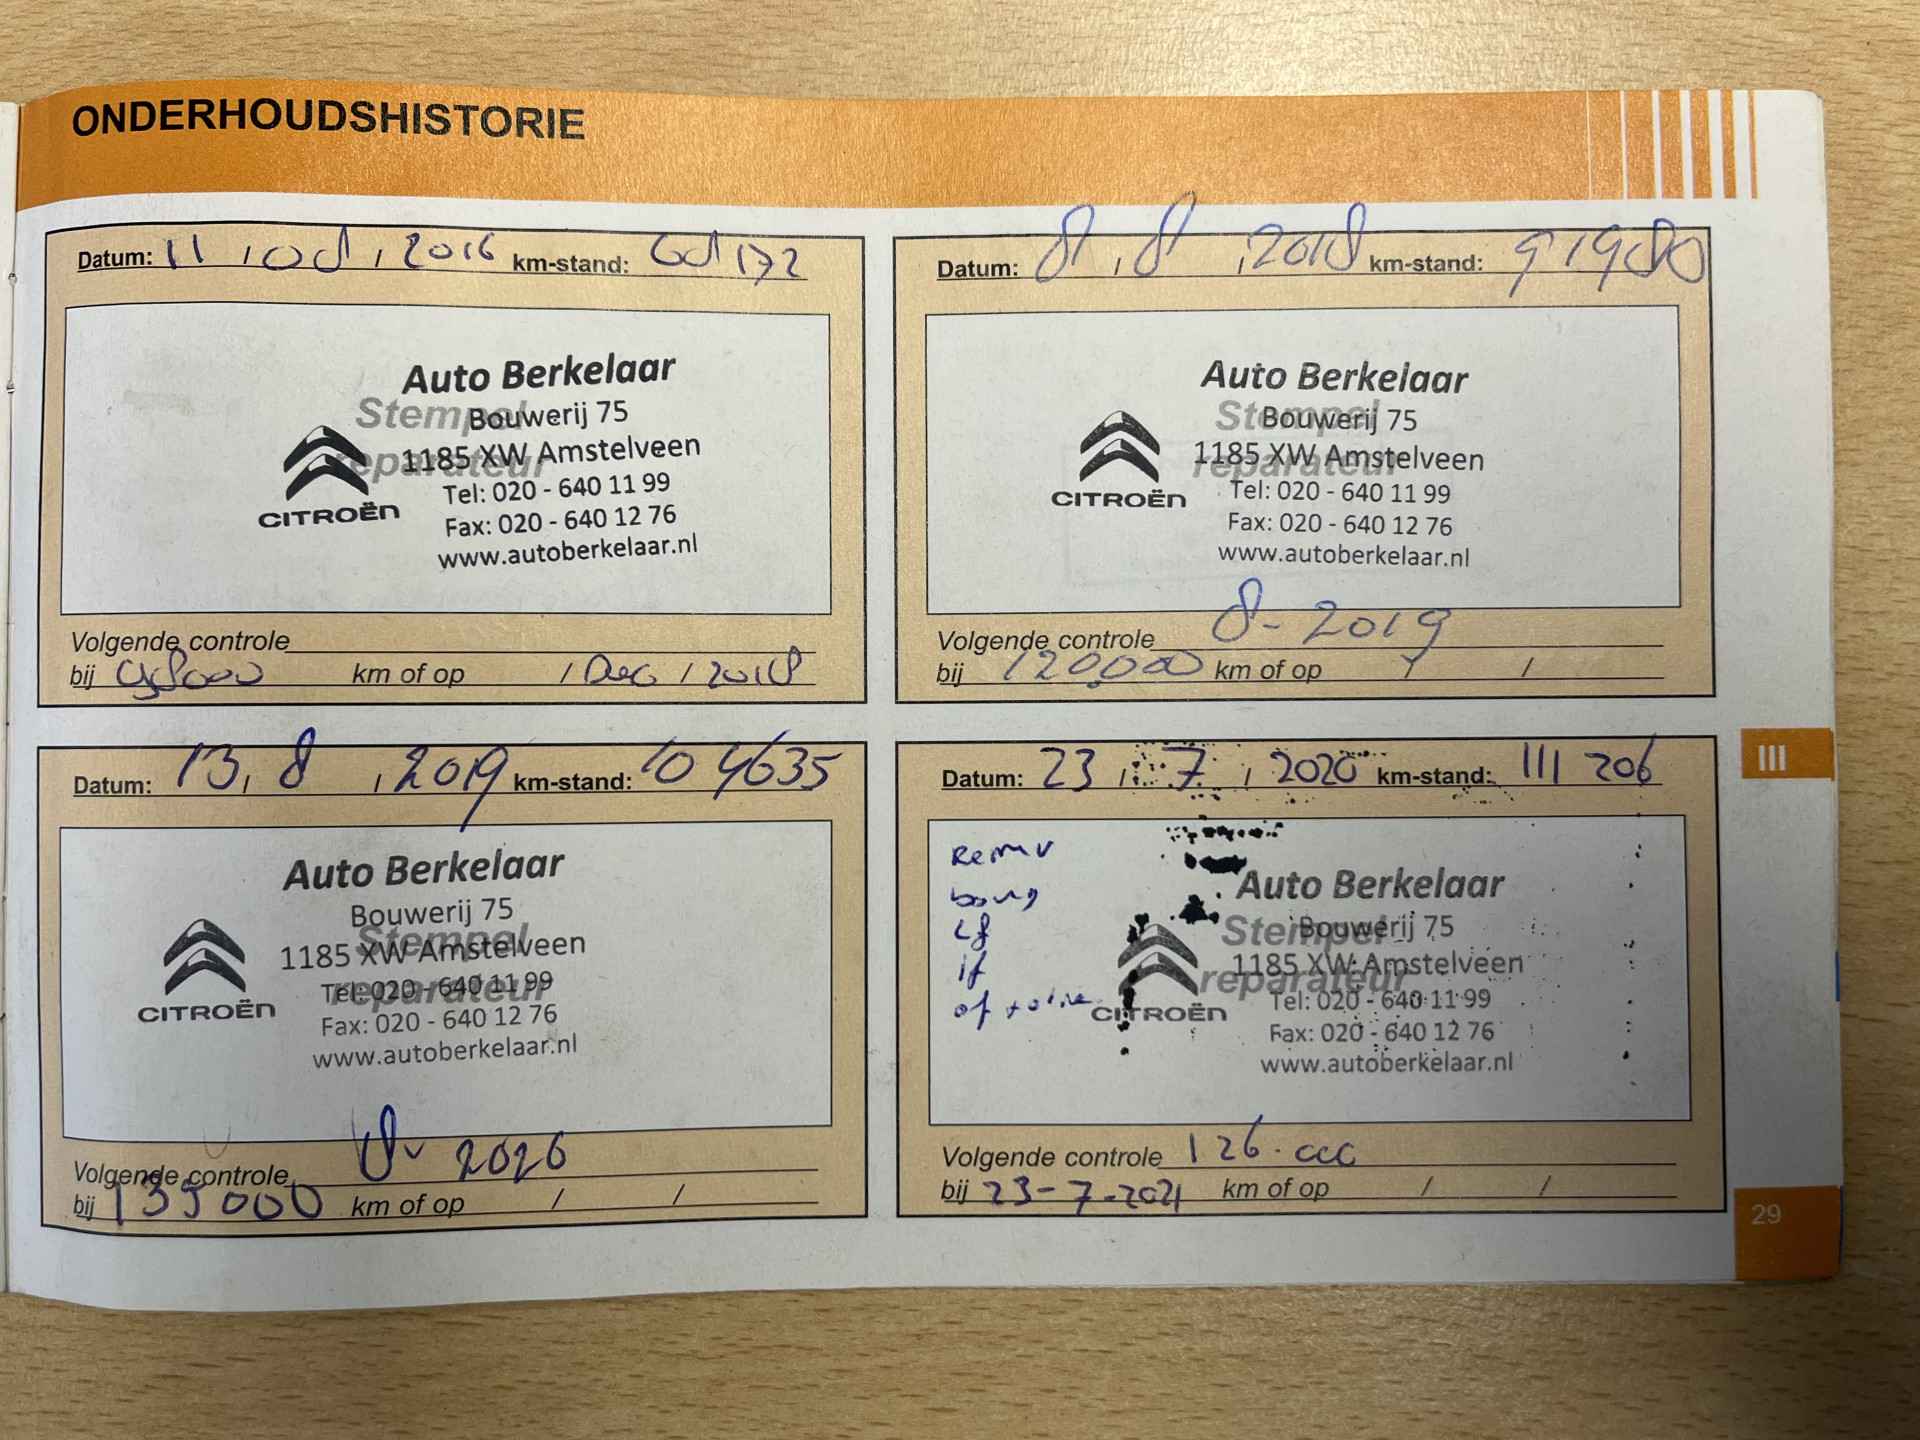 ONDERHOUDSHISTORIE
Datum: 11 / 08 / 2016 km-stand: 68172
Auto Berkelaar
Stempel
Bouwerij 75
reparateur
1185 XW Amstelveen
Tel: 020 - 640 11 99
CITROËN
Fax: 020 - 640 12 76
www.autoberkelaar.nl
Volgende controle
bij 98000 km of op / Dec / 2018
Datum: 8 / 8 / 2018 km-stand: 91980
Auto Berkelaar
Stempel
Bouwerij 75
reparateur
1185 XW Amstelveen
Tel: 020 - 640 11 99
CITROËN
Fax: 020 - 640 12 76
www.autoberkelaar.nl
Volgende controle 8-2019
bij 120.000 km of op / /
Datum: 13 / 8 / 2019 km-stand: 104635
Auto Berkelaar
Bouwerij 75
Stempel
1185 XW Amstelveen
reparateur
Tel: 020 - 640 11 99
CITROËN
Fax: 020 - 640 12 76
www.autoberkelaar.nl
Volgende controle 8- 2020
bij 135000 km of op / /
Datum: 23 / 7 / 2020 km-stand: 111 206
Remv
Auto Berkelaar
Stempel
Bouwerij 75
reparateur
1185 XW Amstelveen
lf
if
of + olie
Tel: 020 - 640 11 99
CITROËN
Fax: 020 - 640 12 76
www.autoberkelaar.nl
Volgende controle 126.000
bij 23-7-2021 km of op / /
III
29